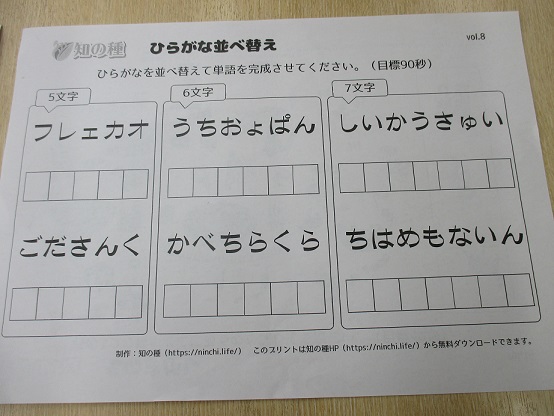 知の種
ひらがな並べ替え
vol.8
ひらがなを並べ替えて単語を完成させてください。（目標90秒）
5文字
6文字
7文字
フレェカオ
うちおょぱん
しいかうさゅい
ごださんく
かべちらくら
ちはめもないん
制作：知の種（https://ninchi.life/） このプリントは知の種HP（https://ninchi.life/）から無料ダウンロードできます。